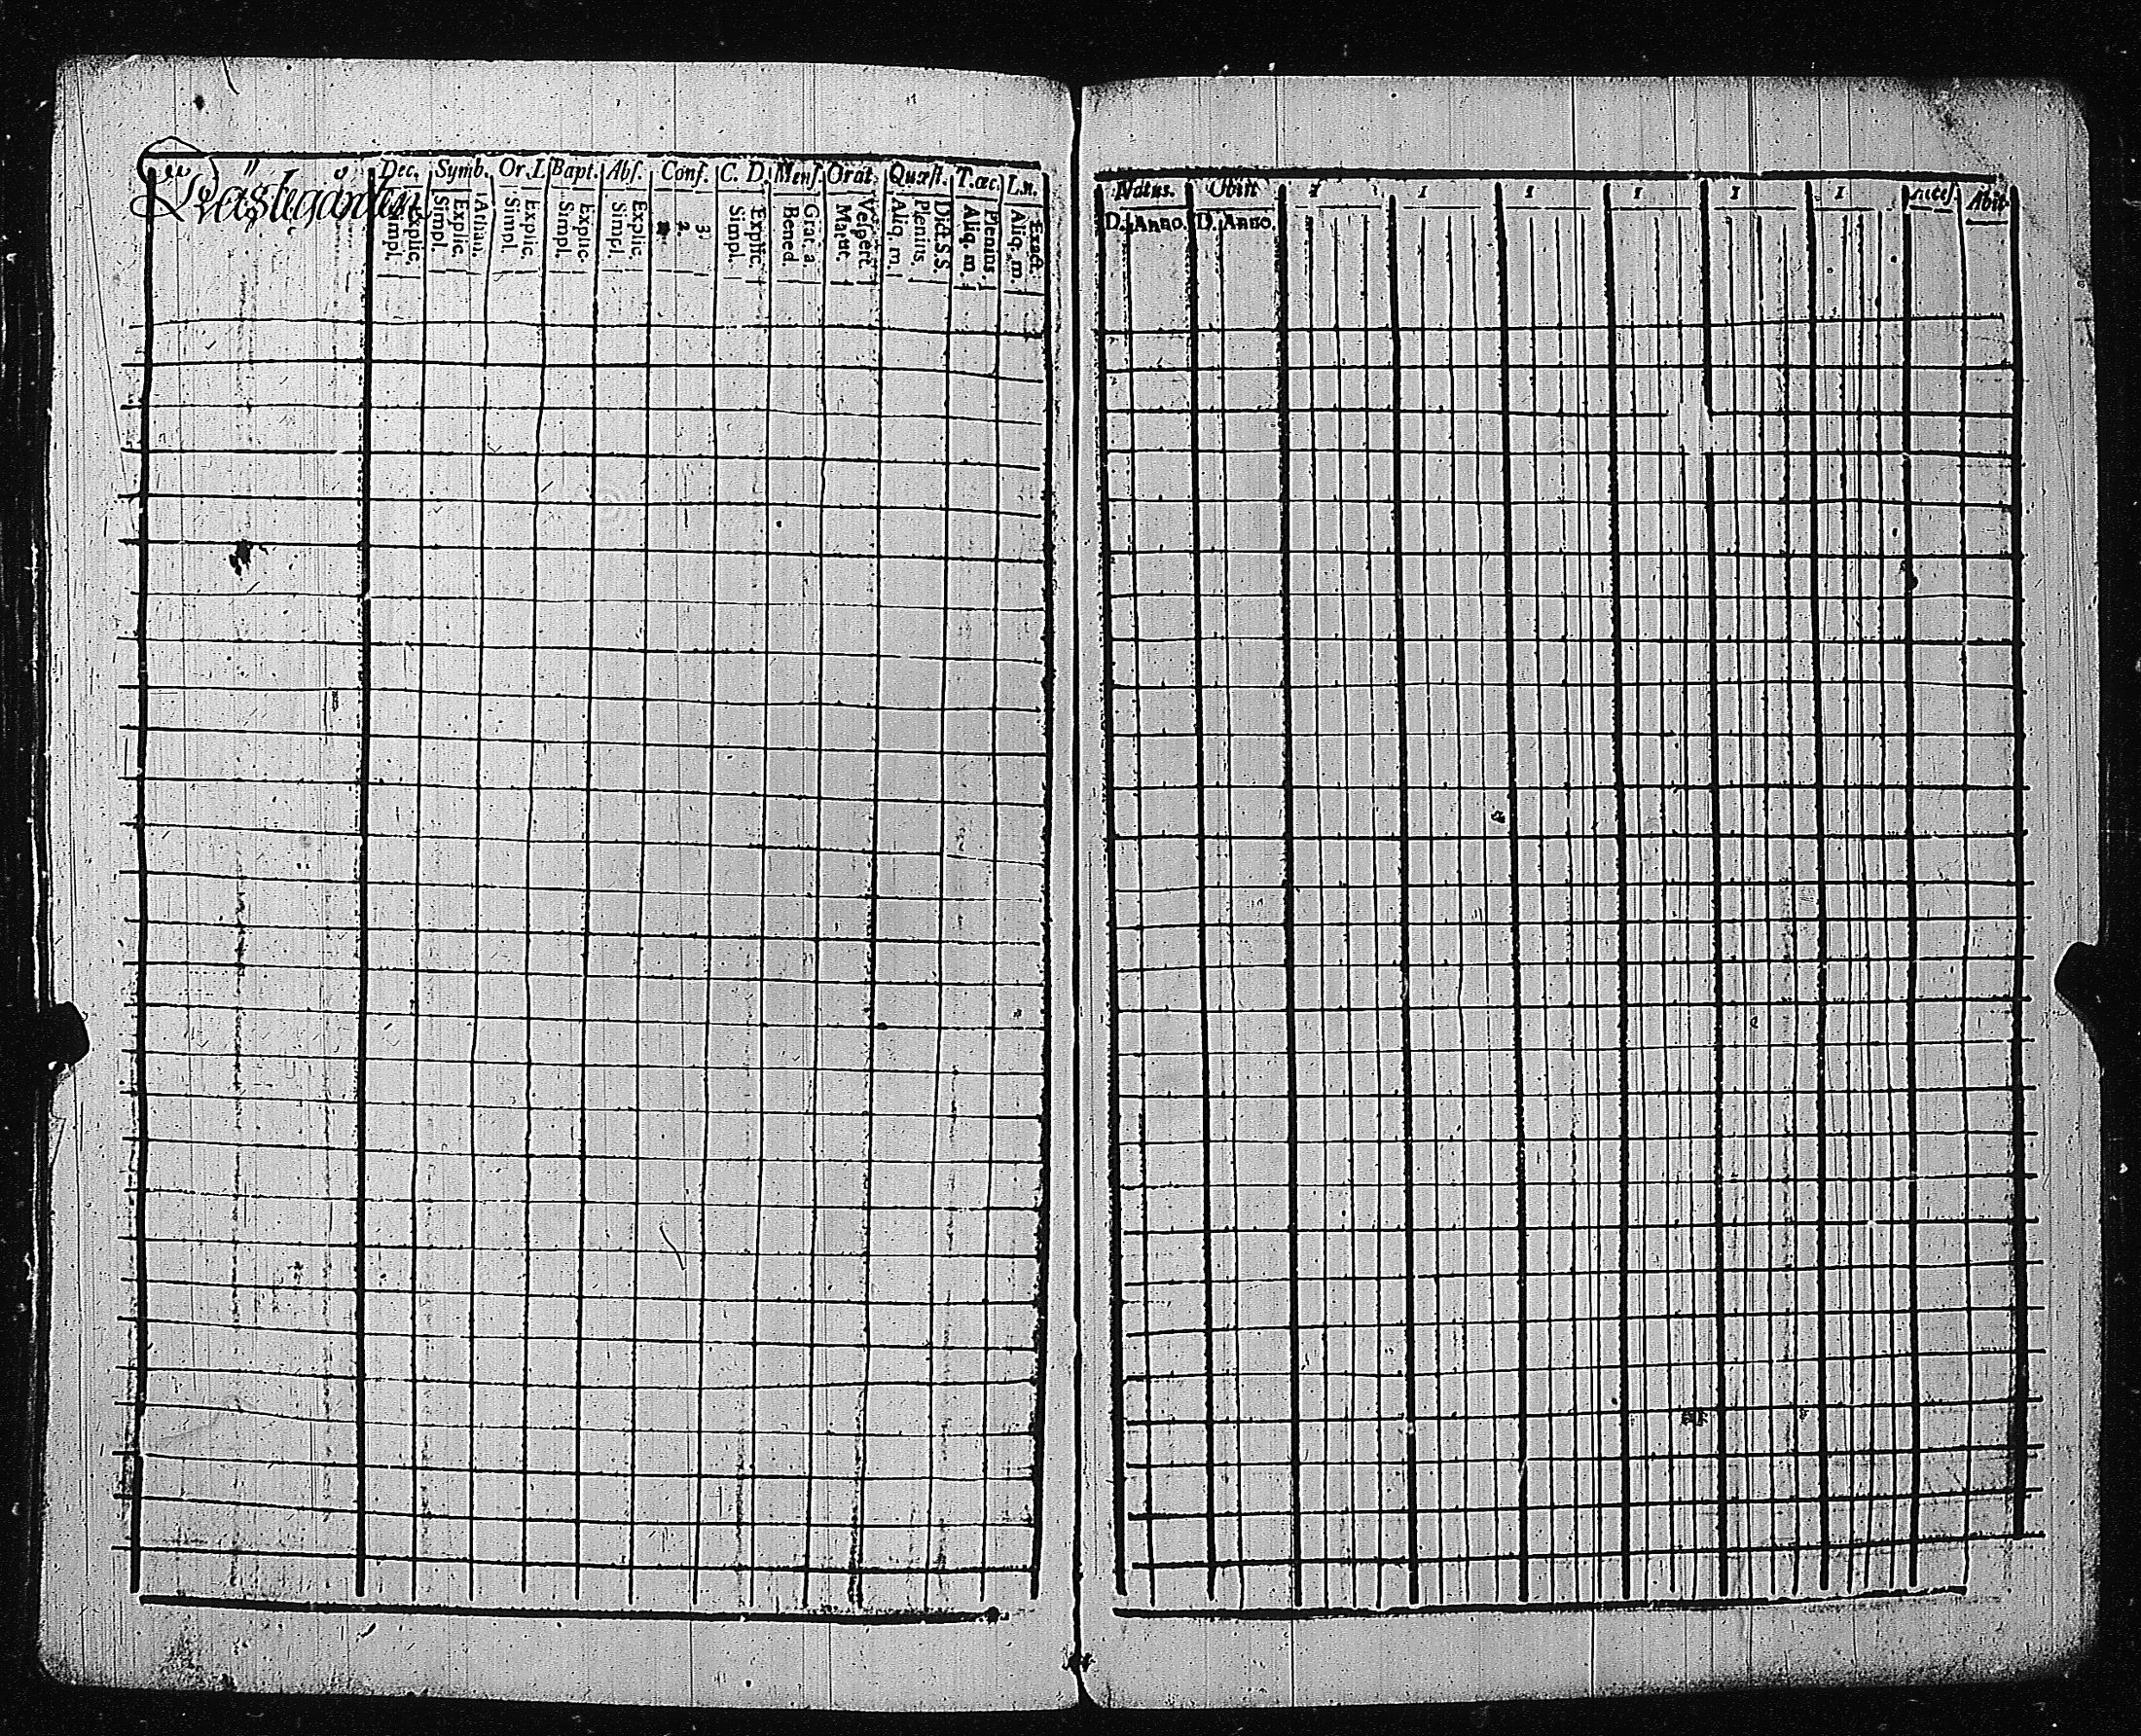 Prästegården
Dec. Symb. Or. D. Bapt. Abs. Conf. C. D. Mens. Orat. Quæst. T. œc. L. n.
Explic. Simpl. Athan. Explic. Simpl. Explic. Simpl. Explic. Simpl. Explic. Simpl. 3 2 Explic. Simpl. Grat. a. Bened. Vespert. Matut. Dict. S. S. Plenius. Aliq. m. Plenius. Aliq. m. Exact. Aliq. m.
Natus. Obiit 1 1 1 1 1 1 Abit
D. Anno. D. Anno.